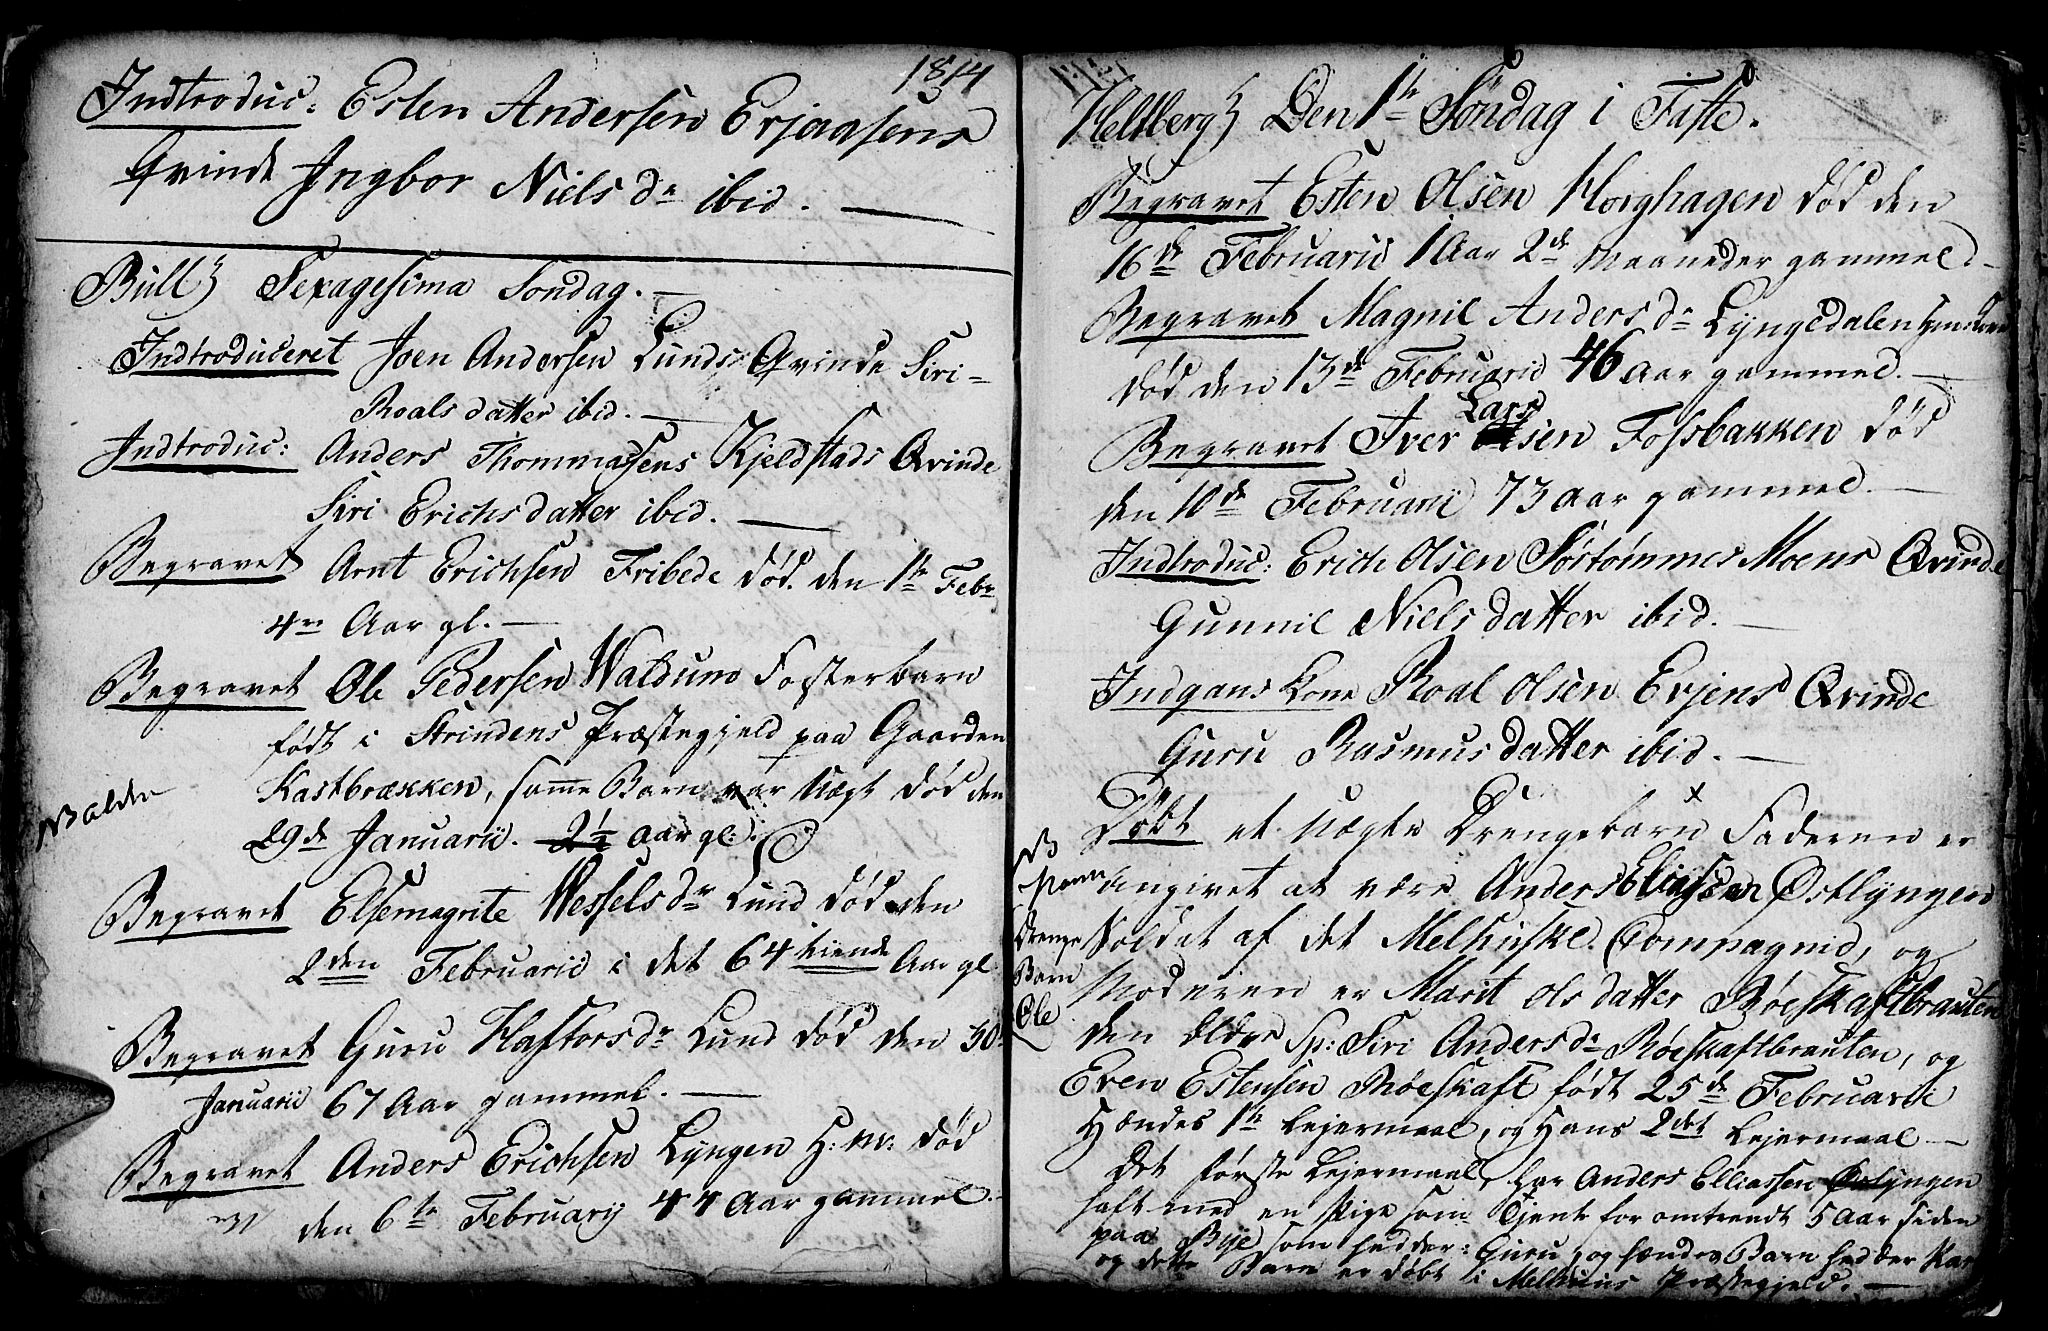 1814
Indtroduc: Esten Andersen Erjaasens
Qvinde Ingbor Niels dr ibid.
Büll} Sexagesima Sondag.
Indtroduceret Joen Andersen Lunds Qvinde Siri
Roals datter ibid.
Indtroduc: Anders Thommasens Kjeldstads Qvinde
Siri Erichsdatter ibid.
Begravet Arnt Erichsen Fribede død. den 1te Febr
4re Aar gl.
Begravet Ole Pedersen Waldsund Fosterbarn
født i Strindens Præstegjeld paa Gaarden
Kastbrækken, samme Barn var Uægt død den
29de Januarii. 2½ Aar gl:
Begravet Elsemagrite Wessels dr Lund død den
2den Februarii i det 64 tiende Aar gl.
Begravet Guru Hastors dr Lund død den 30
Januarii 67 Aar gammel.
Begravet Anders Erichsen Lyngen H: M: død
den 6te Februarij 44 Aar gammel.
Heltberg} Den 1te Søndag i Faste.
Begravet Esten Olsen Horghagen død den
16de Februarii 1 Aar 2de Maaneder gammel
Begravet Magnil Anders dr Lyngedalen
død den 13de Februarii 46 Aar gammel.
Lars
Begravet Iver sen Fossbakken død
den 10de Februarii 73 Aar gammel.
Indtroduc: Erich Olsen Søstømmes Moens Qvinde
Gunnil Niels datter ibid.
Indgans Kone Roal Olsen Evjens Qvinde
Guru Rasmus datter ibid.
Døbt et Uægte Drengebarn x Faderen er
angivet at være Anders Eliasen Østlyngen
Soldat af det Melhuiske Compagnie, og
NB
Drenge
Barn
Ole
Moderen er Marit Ols datter Røeskaftbrauten
den Eldre Sp: Siri Anders dr Røeskaftbrauten, og
Even Estensen Røeskaft født 25de Februarii
Hændes 1te Lejermaal, og Hans 2det Lejermaal
Det første Lejermaal, har Anders Elliassen Østlyngen
haft med en Pige som Tjente for omtrendt 5 Aar siden
paa Bye som hedder: Guru, og hændes Barn hedder
og dette Barn er døbt i Melhuus Præstegjeld.